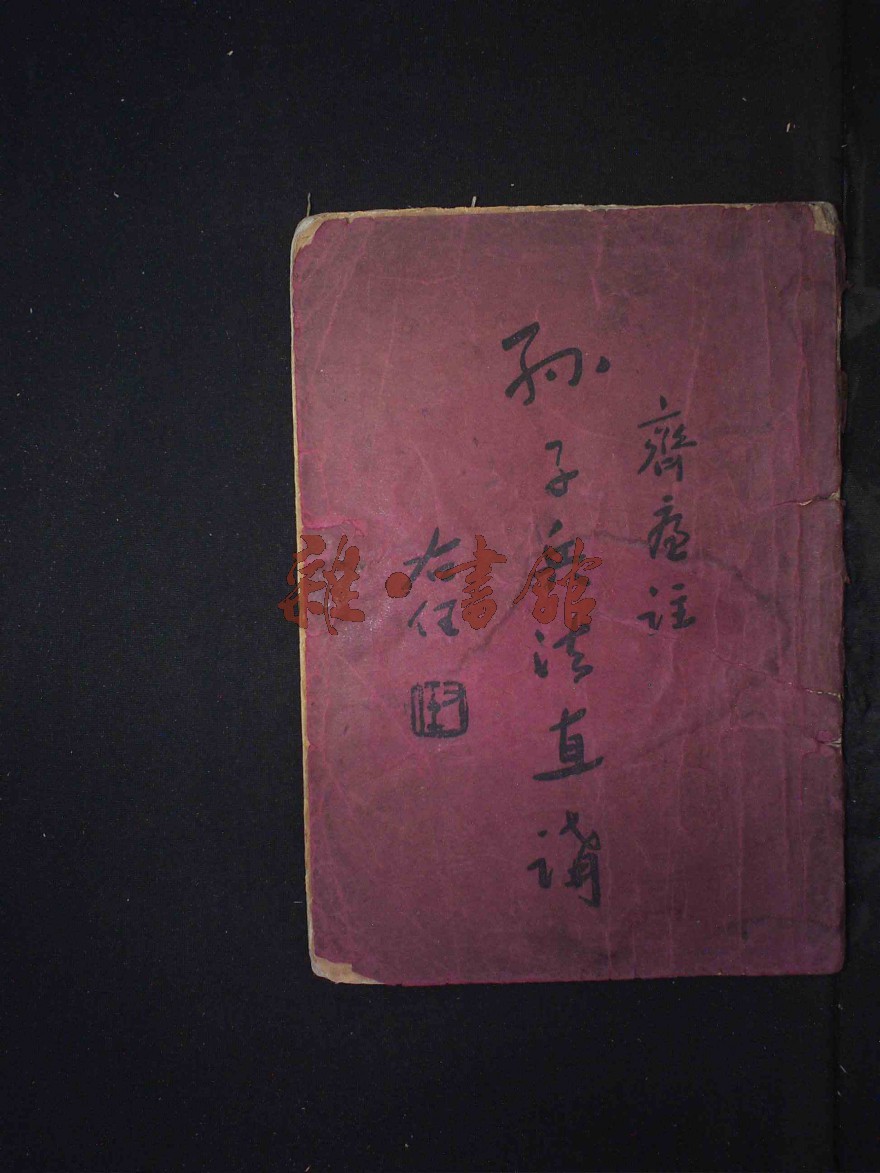 齊廉註
孫子兵法直講
右任
雜·書館